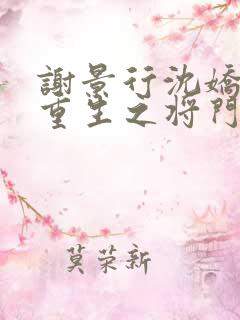 謝景行沈嬌
重生之將門
莫荣新